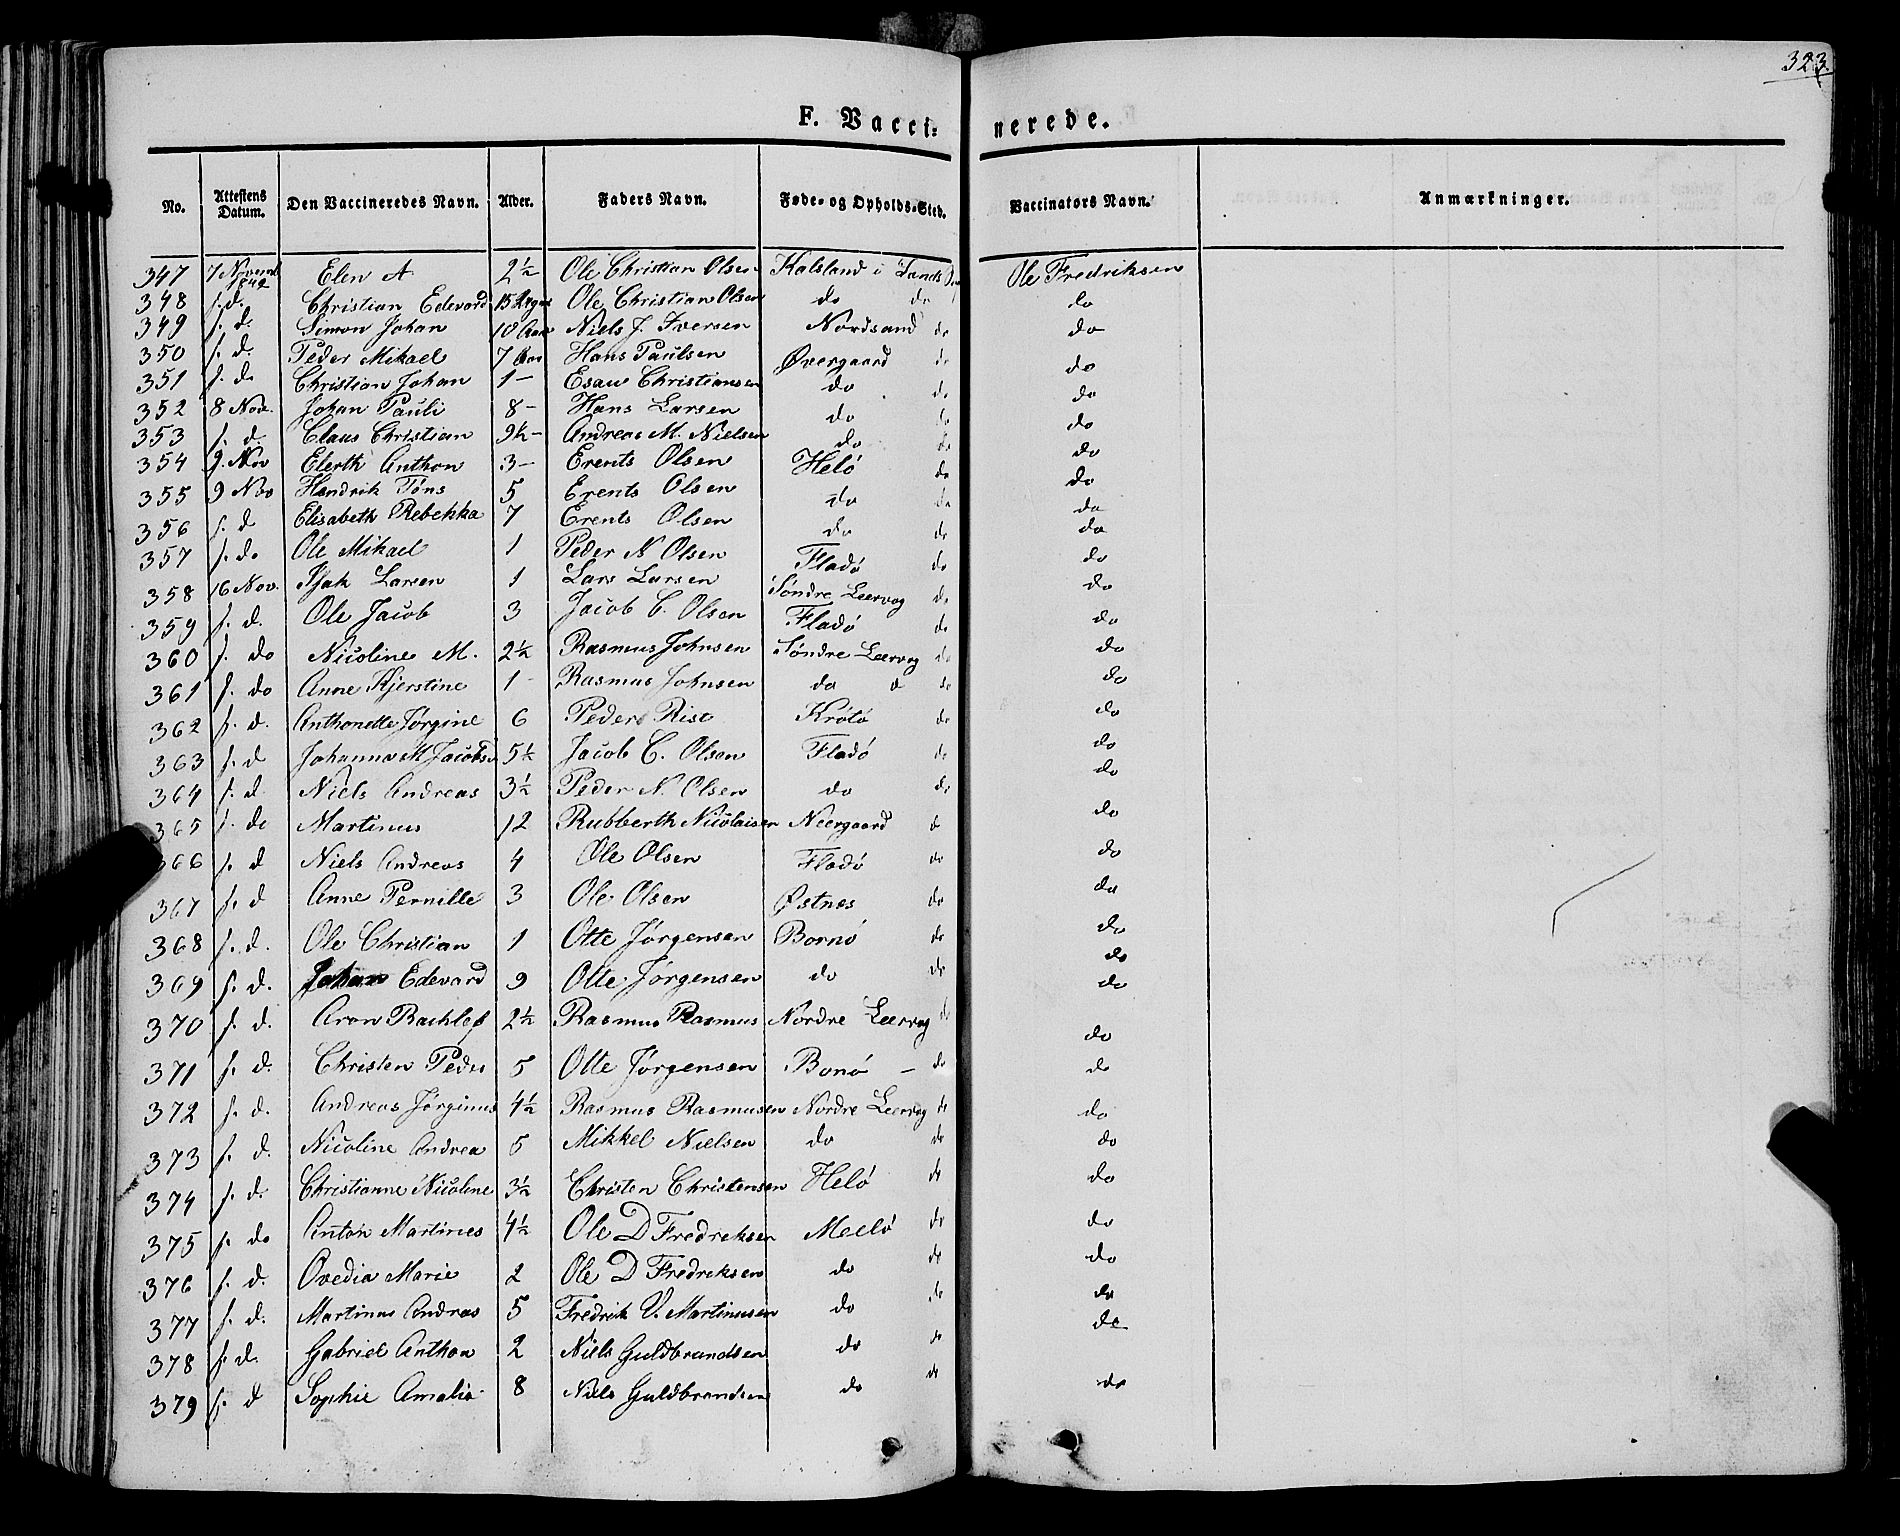 323.
F. Vacci: nerede.
No. Attestens Datum. Den Vaccineredes Navn. Alder. Faders Navn. Føde- og Opholds-Sted. Vaccinators Navn. Anmærkninger.
347 7 Novemb Elen A 2½ - Ole Christian Olsen Kalsland i Ole Fredriksen
348 s. d. Christian Edevard 15 Ole Christian Olsen do do do
349 s. d. Simon Johan 10 Aar Niels J. Iversen Nordsand do do
350 s. d. Peder Mikael 7 Aar Hans Paulsen Øvergaard do do
351 s. do Christian Johan 1 - Esau Christiansen do do do
352 8 Nov. Johan Pauli 8 - Hans Larsen do do do
353 s. d. Claus Christian 9½ - Andreas M. Nielsen do do do
354 9. Nov Elerth Anthon 3 - Erents Olsen Helö do do
355 9 Nov Hendrik Töns 5 Erents Olsen do do do
356 s. d Elisabeth Rebekka 7 Erents Olsen do do do
357 s. do Ole Mikael 1 Peder N Olsen Fladö do do
358 16 Nov. Isak Larsen 1 Lars Larsen Söndre Leervog do do
359 s. d. Ole Jacob 3 Jacob C. Olsen Fladö do do
360 s. do Nicoline M. 2½ Rasmus Johnsen Söndre Leervog do do
361 s. do Anne Kjerstine 1 - Rasmus Johnsen do d do do
362 s. d. Anthonette Jørgine 6 Peder Rist Krötö do do
363 s. d Johanna M Jacobsd 5½ Jacob C. Olsen Fladö do do
364 s. d. Niels Andreas 3½ Peder N. Olsen do do do
365 s. do Martinus 12 Rubberth Nicolaisen Neergaard d do
366 s. d Niels Andreas 4 Ole Olsen Fladö do do
367 s. d Anne Pernille 3 Ole Olsen Østnes do do
368 s. d. Ole Christian 1 Otte Jörgensen Bornö do do
369 s. d. Johan Edevard 9 Otte Jörgensen do do do
370 s. d. Aron Rachlef 2½ Rasmus Rasmus Nordre Leervog do do
371 s. d. Christen Peder 5 Otte Jörgensen Bonö - do do
372 s. d. Andreas Jörginus 4½ Rasmus Rasmusen Nordre Leervog do do
373 s. d. Nicoline Andrea 5 Mikkel Nielsen do do do
374 s. d. Christianne Nicoline 3½ Christen Christensen Helö do do
375 s. do Anton Martines 4½ Ole D Fredreksen Meelö do do
376 s. d. Ovedia Marie 2 Ole D Fredreksen do do do
377 s. d. Martinus Andreas 5 Fredrik V. Martinusen do do do
378 s. d. Gabriel Anthon 2 Niels Guldbrandsen do do do
379 s. d Sophie Amalia 8 Niels Guldbrandsen do do do